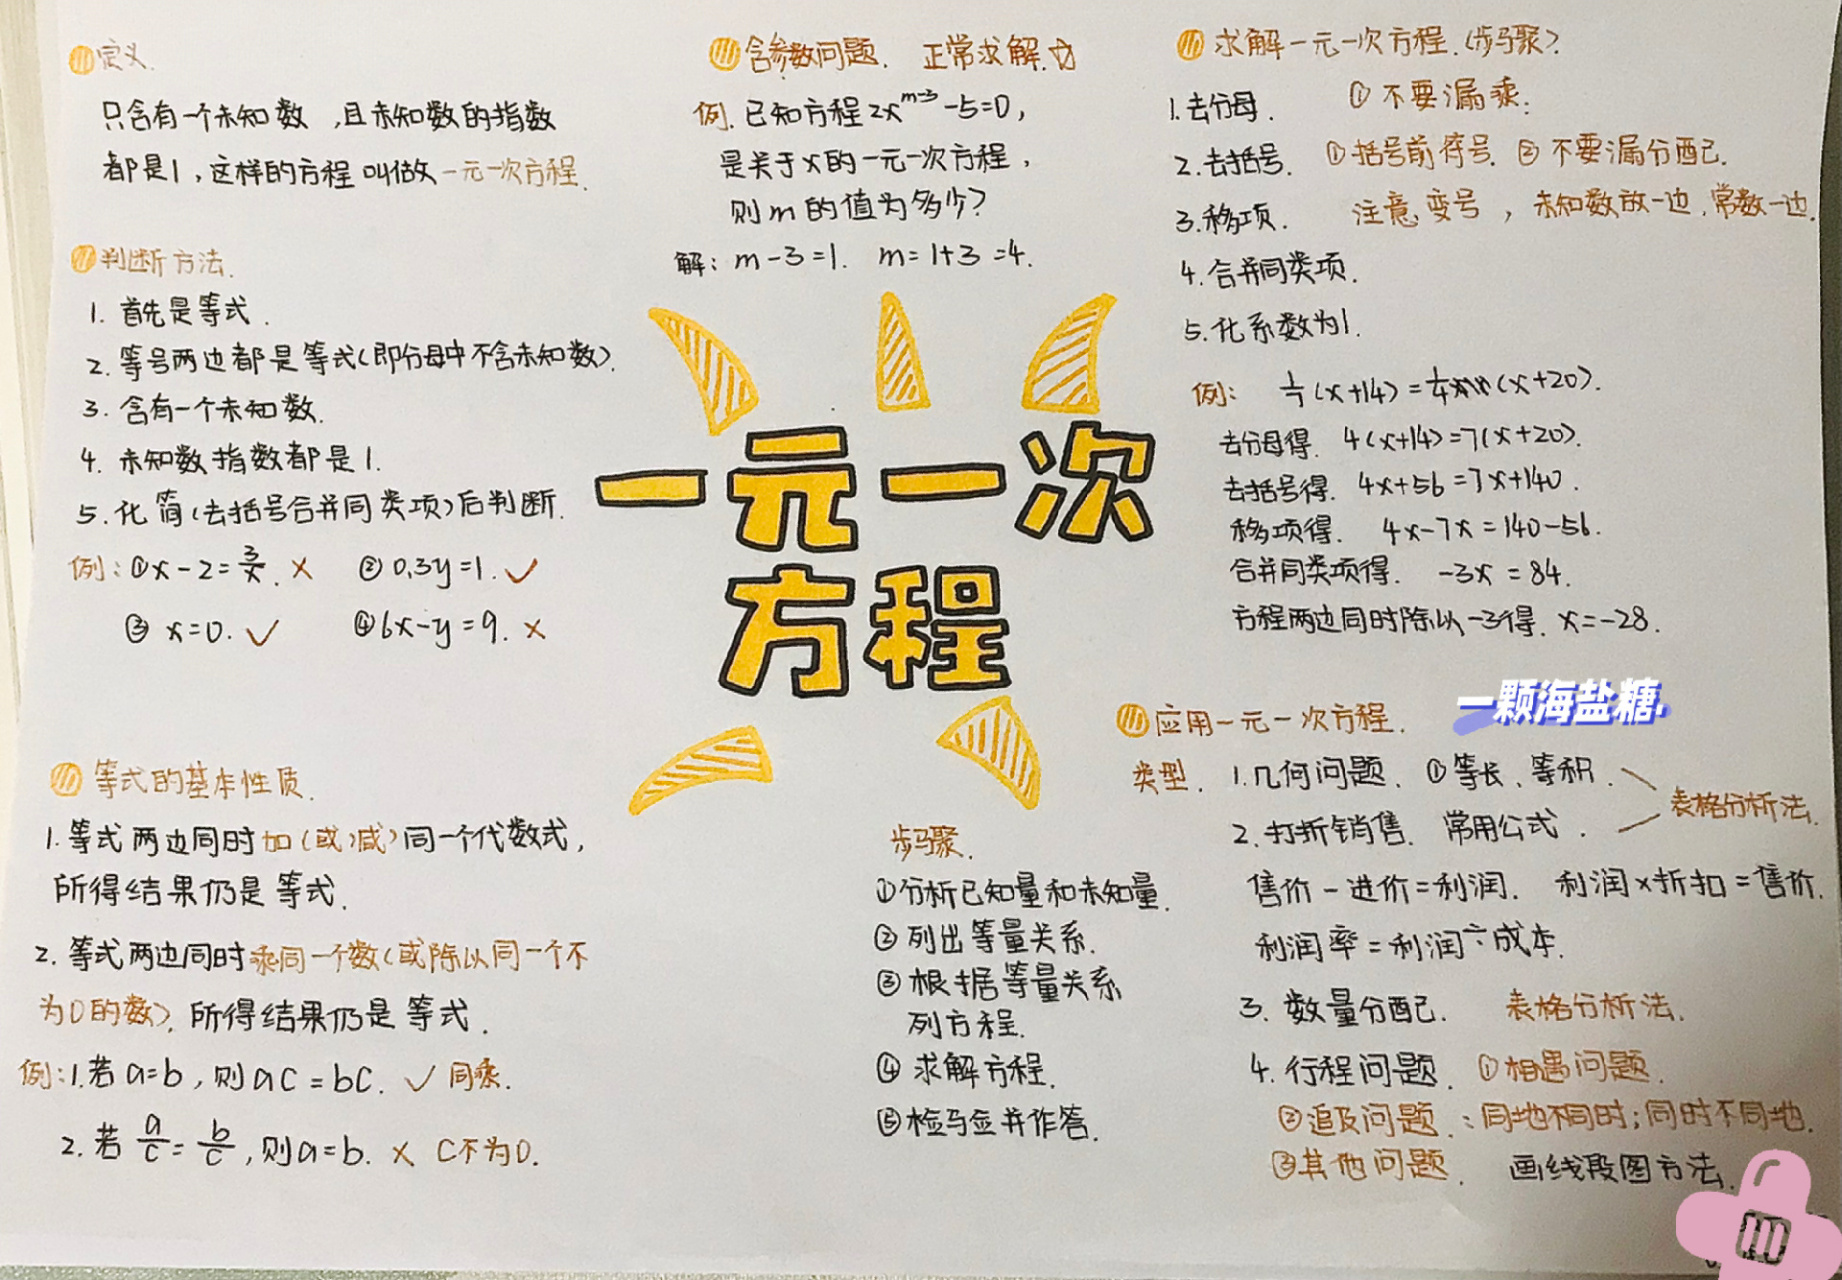 定义.
只含有一个未知数,且未知数的指数
都是1,这样的方程叫做一元一次方程.
判断方法.
1. 首先是等式.
2. 等号两边都是等式(即分母中不含未知数).
3. 含有一个未知数.
4. 未知数指数都是1.
5. 化简(去括号合并同类项)后判断.
例:①x-2=3/x. × ②0.3y=1. ✓
③ x=0. ✓ ④6x-y=9. ×
等式的基本性质.
1. 等式两边同时加(或减)同一个代数式,
所得结果仍是等式.
2. 等式两边同时乘同一个数(或除以同一个不
为0的数).所得结果仍是等式.
例:1.若a=b,则ac=bc. ✓ 同乘.
2. 若a/c=b/c,则a=b. × C不为0.
含参数问题. 正常求解.☆
例.已知方程2x^(m-3)-5=0,
是关于x的一元一次方程,
则m的值为多少?
解:m-3=1. m=1+3=4.
一元一次
方程
步骤.
①分析已知量和未知量.
②列出等量关系.
③根据等量关系
列方程.
④求解方程.
⑤检验并作答.
求解一元一次方程.(步骤).
1.去分母. ①不要漏乘.
2.去括号. ①括号前符号. ②不要漏分配.
3.移项. 注意变号,未知数放一边,常数一边.
4.合并同类项.
5.化系数为1.
例: 1/7(x+14)=1/4(x+20).
去分母得. 4(x+14)=7(x+20).
去括号得. 4x+56=7x+140.
移项得. 4x-7x=140-56.
合并同类项得. -3x=84.
方程两边同时除以-3得. x=-28.
一颗海盐糖.
应用一元一次方程.
类型. 1.几何问题. ①等长、等积.
表格分析法.
2.打折销售. 常用公式.
售价-进价=利润. 利润×折扣=售价.
利润率=利润÷成本.
3. 数量分配. 表格分析法.
4. 行程问题. ①相遇问题.
②追及问题.:同地不同时;同时不同地.
③其他问题. 画线段图方法.